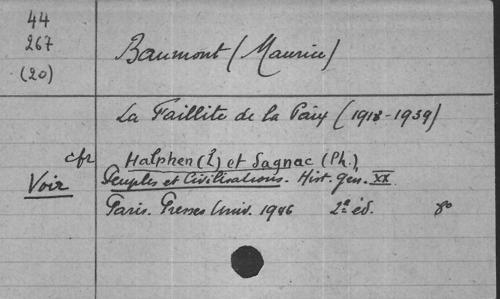 44
267
(20)
Baumont (Maurice)
La Faillite de la Paix (1918-1939)
cfr Halphen (L) et Sagnac (Ph.)
Voir Peuples et Civilisations. Hist. gén. XX
Paris. Presses Univ. 1946 2e éd. 8°